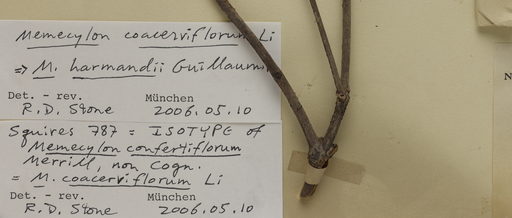 Memecylon coacerviflorum Li
=> M. harmandii Guillaumin
Det. - rev. München
R.D. Stone 2006.05.10
Squires 787 = ISOTYPE of
Memecylon confertiflorum
Merrill, non Cogn.
= M. coacerviflorum Li
Det. - rev. München
R.D. Stone 2006.05.10
N